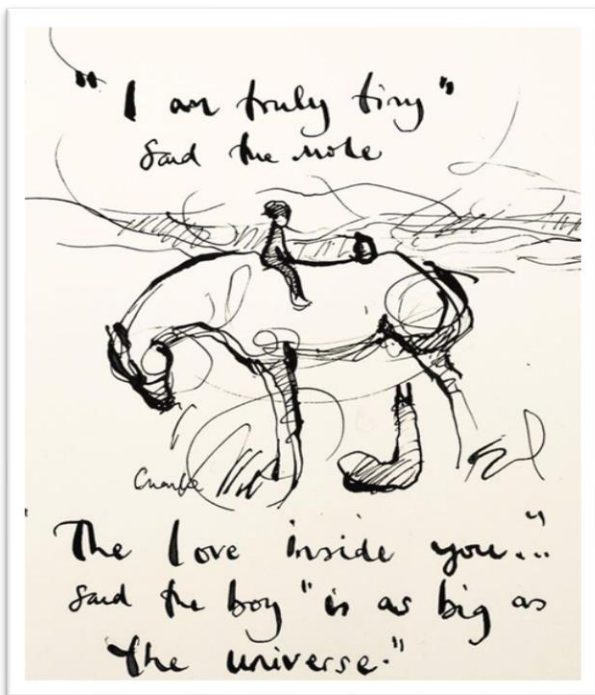 "I am truly tiny"
said the mole
Charlie
"The love inside you..."
said the boy "is as big as
the universe."